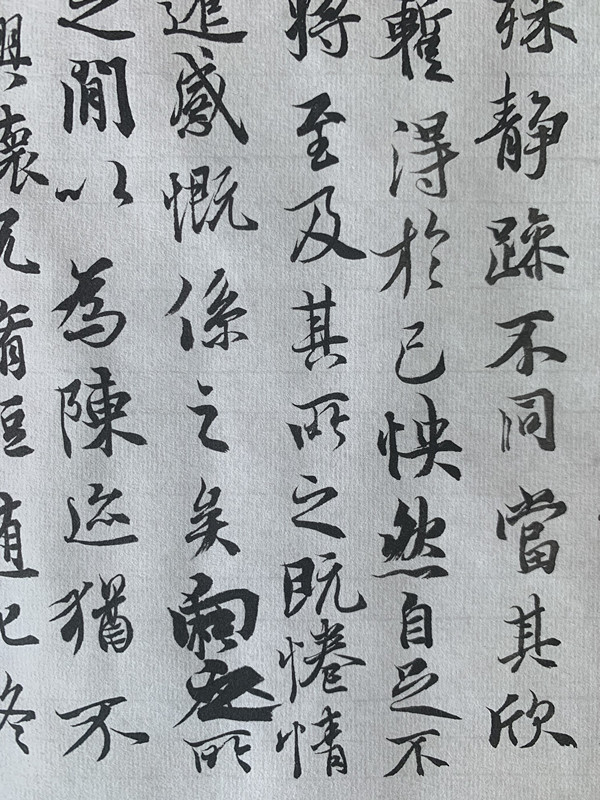 殊静躁不同當其欣
暫得於己怏然自足不
將至及其所之既惓情
遷感慨係之矣向之所
之閒以為陳迹猶不
興懷況脩短隨化終